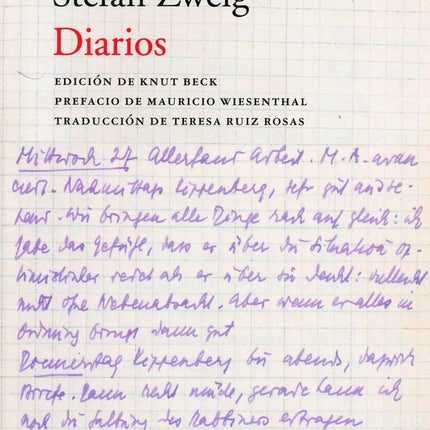 Stefan Zweig
Diarios
EDICIÓN DE KNUT BECK
PREFACIO DE MAURICIO WIESENTHAL
TRADUCCIÓN DE TERESA RUIZ ROSAS
Mittwoch 27 Allerhand Arbeit. M. A. avan
ciert. Nachmittags Kippenberg, sehr gut
Wir bringen alle Dinge auf gleich: ich
habe das Gefühl, dass er über die Situation op-
timistischer redet als er über sie denkt: vielleicht
nicht ohne Nebenabsicht. Aber wenn er alles in
Ordnung bringt dann gut
Donnerstag Kippenberg bis abends,
Briefe. Dann recht müde, gerade kann ich
noch die des Rabbiners ertragen